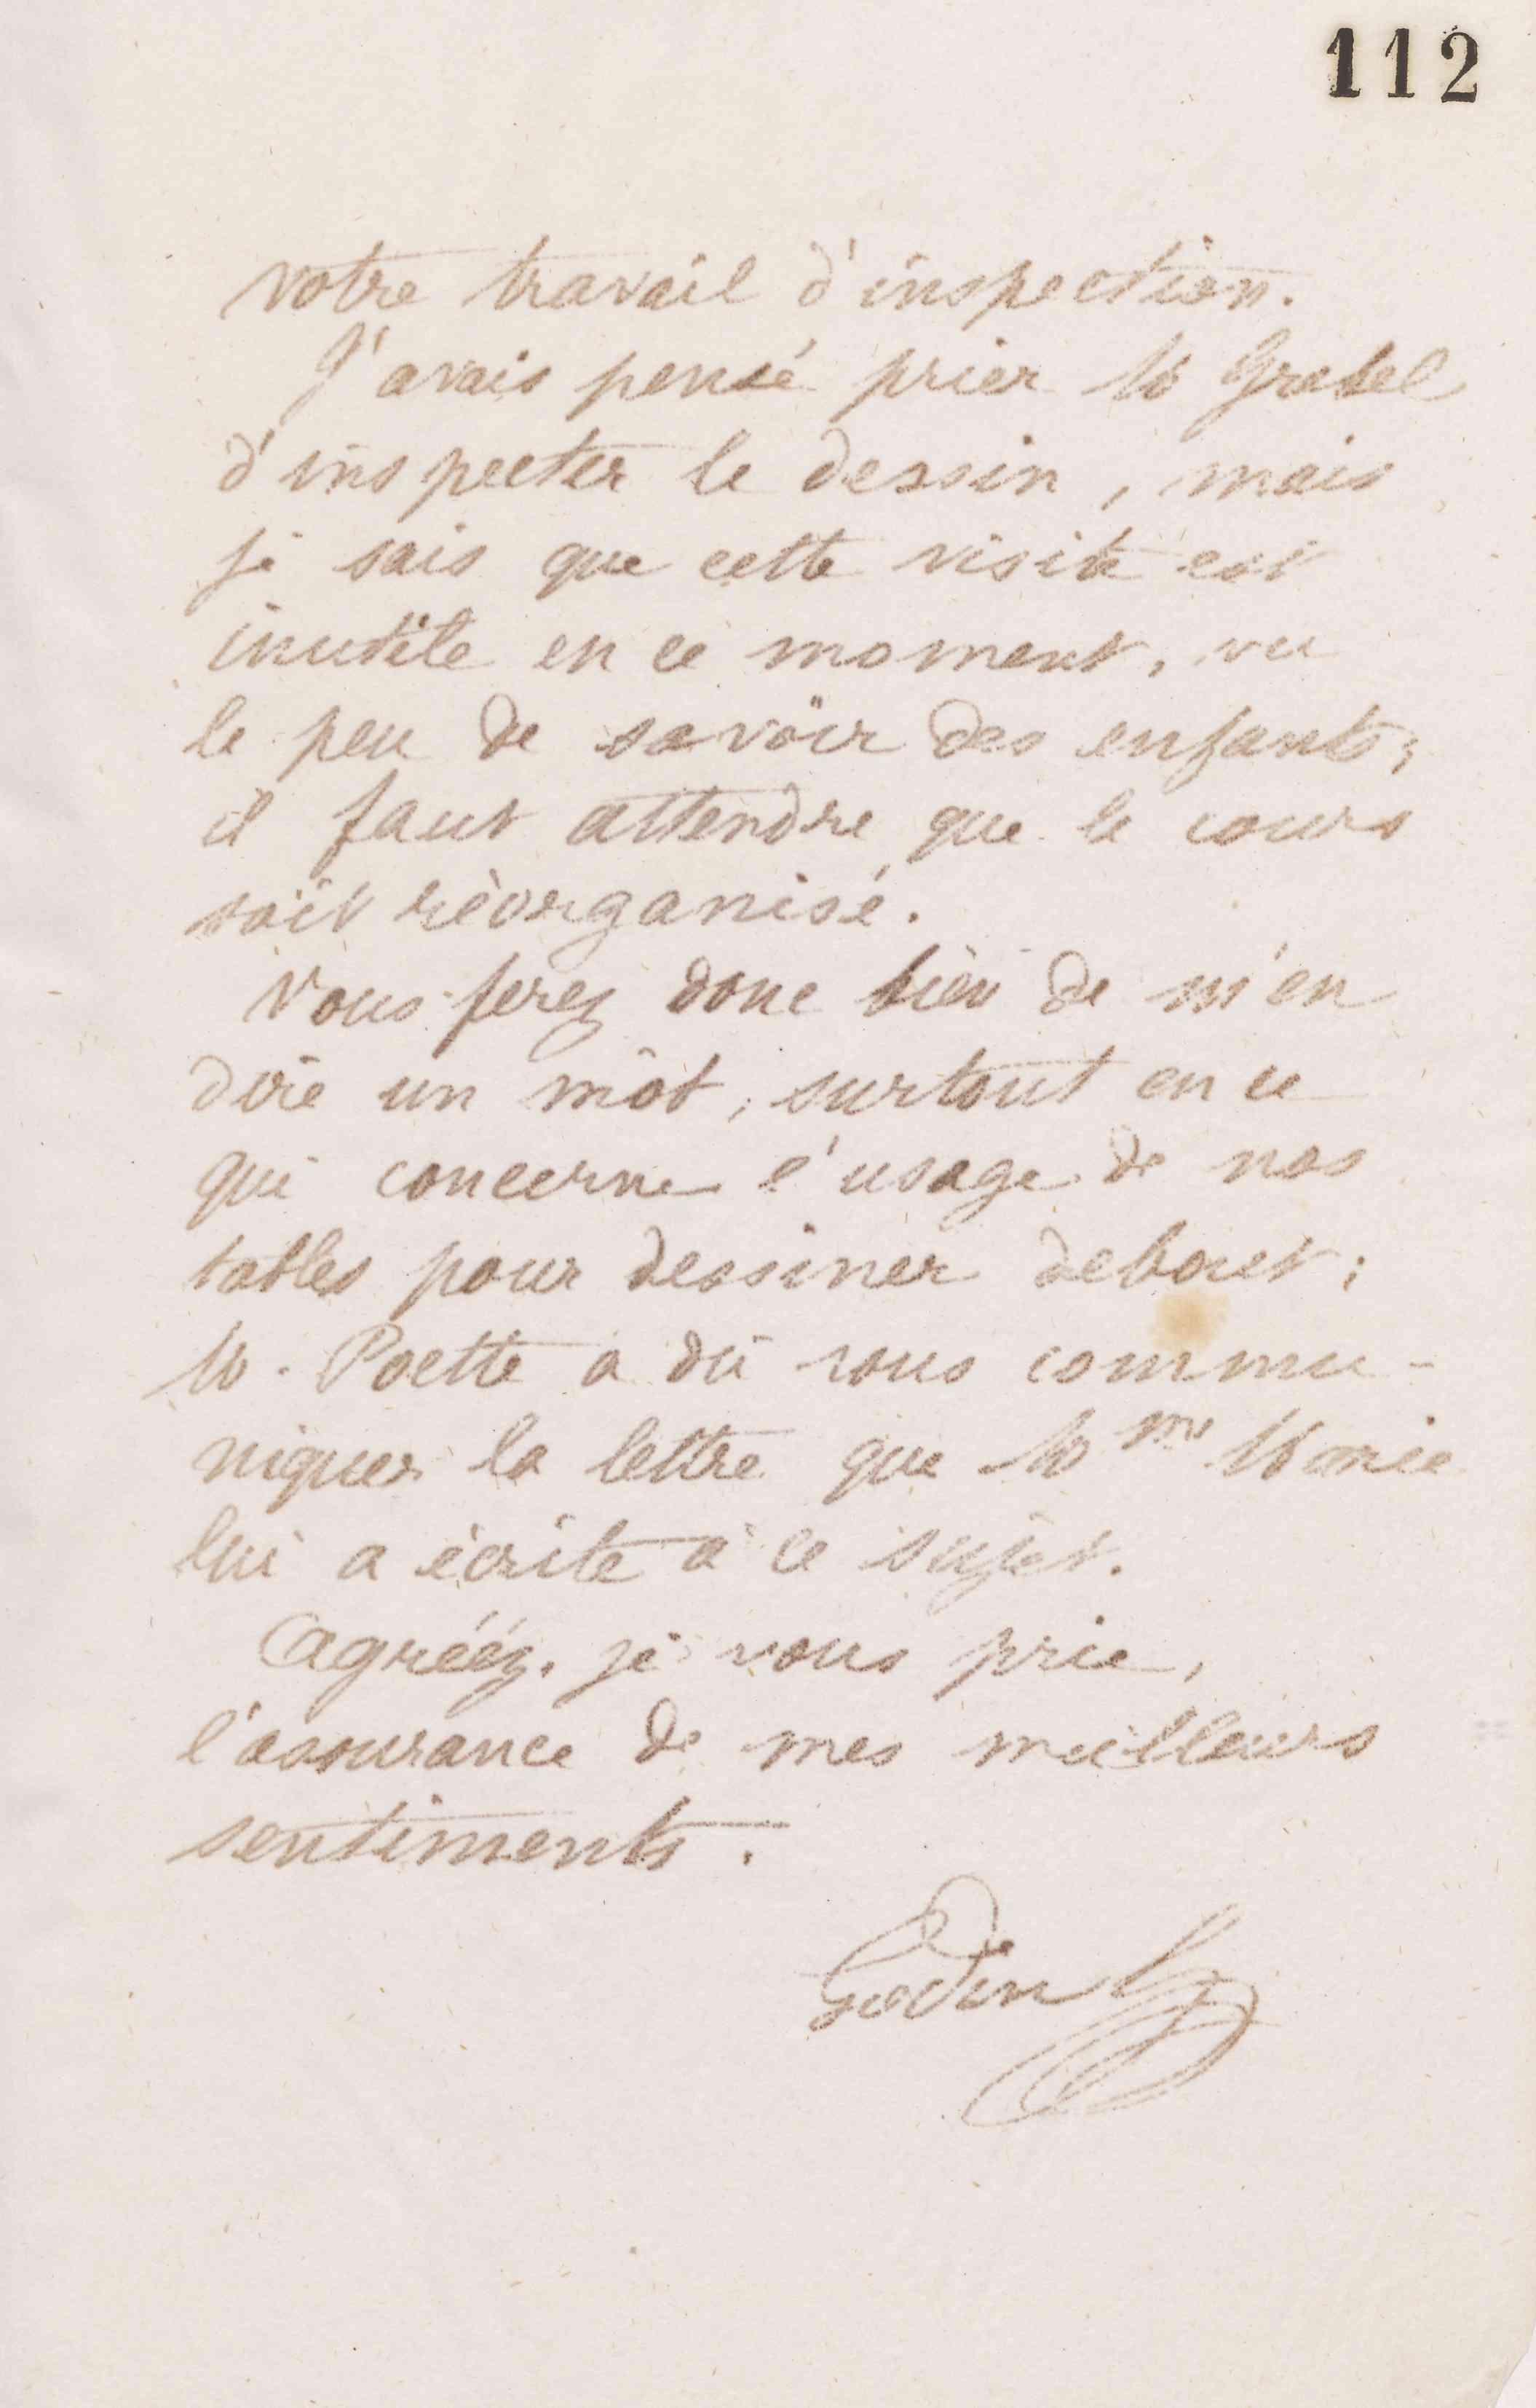 112
votre travail d'inspection.
J'avais pensé prier M Grebel
d'inspecter le dessin, mais
je sais que cette visite est
inutile en ce moment, vu
le peu de savoir des enfants;
il faut attendre que le cours
soit réorganisé.
Vous ferez donc bien de m'en
dire un mot, surtout en ce
qui concerne l'usage de nos
tables pour dessiner debout;
M. Poette a dû vous commu-
niquer la lettre que Mme Marie
lui a écrite à ce sujet.
Agréez, je vous prie,
l'assurance de mes meilleurs
sentiments.
Godin